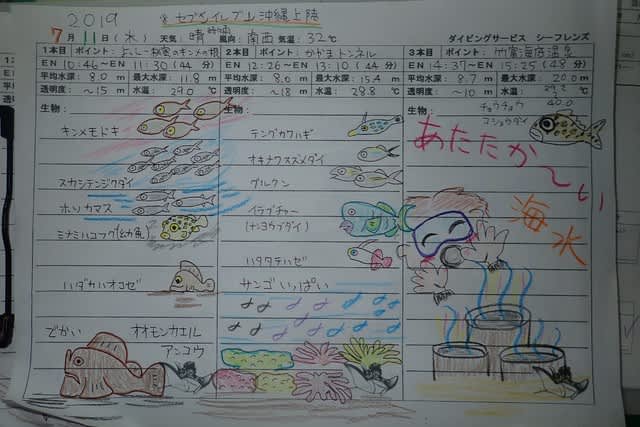 2019
☆セブンイレブン沖縄上陸
7月11日(木) 天気:晴時々雨 風向:南西 気温:32℃ ダイビングサービス シーフレンズ
1本目 ポイント:よしー秘密のキンメの根
EN 10:46 ~ 11:30 (44分)
平均水深:8.0 m 最大水深:11.8 m
透明度:~15 m 水温:29.0 ℃
生物:
キンメモドキ
スカシテンジクダイ
ホソカマス
ミナミハコフグ(幼魚)
ハダカハオコゼ
でかい オオモンカエル
アンコウ
2本目 ポイント:かやまトンネル
EN 12:26 ~ 13:10 (44分)
平均水深:8.0 m 最大水深:15.4 m
透明度:~18 m 水温:28.8 ℃
生物:
テングカワハギ
オキナワスズメダイ
グルクン
イラブチャー
(ナンヨウブダイ)
ハタタテハゼ
サンゴいっぱい
3本目 ポイント:竹富海底温泉
EN 14:37 ~ 15:25 (48分)
平均水深:8.7 m 最大水深:20.0 m
透明度:~10 m 水温:29.2 ℃
40.0
生物:
チョウチョウ
コショウダイ
あたたか~い
海水